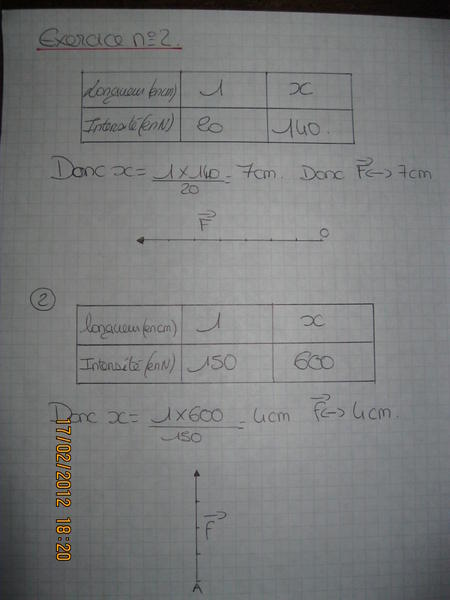 Exercice n°2.
Longueur (en cm) 1 x
Intensité (en N) 20 140.
Donc x = 1 x 140 / 20 = 7cm. Donc F <-> 7cm
F
O
2
Longueur (en cm) 1 x
Intensité (en N) 150 600
Donc x = 1 x 600 / 150 = 4cm F <-> 4cm.
F
A
17/02/2012 18:20